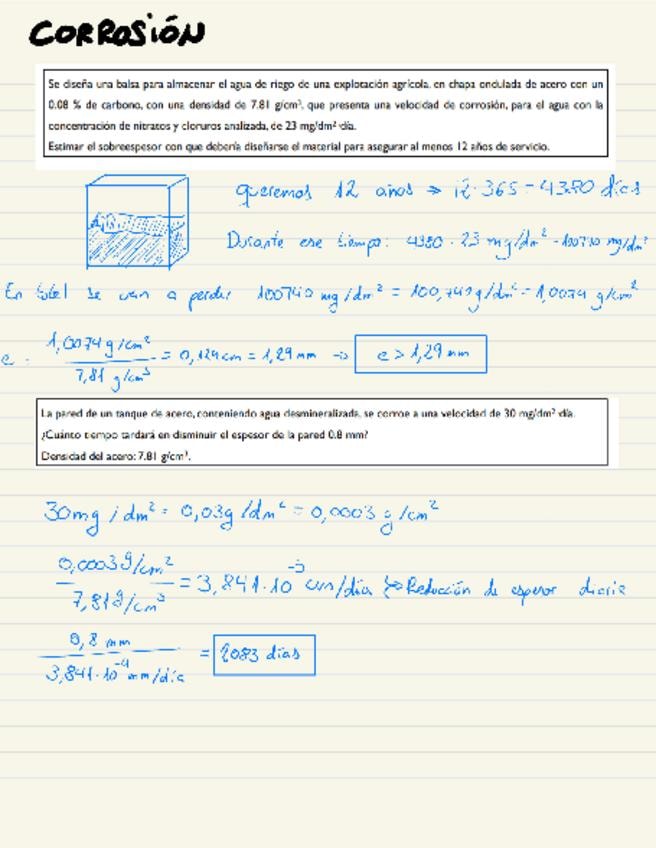 CORROSIÓN
Se diseña una balsa para almacenar el agua de riego de una explotación agrícola, en chapa ondulada de acero con un
0.08 % de carbono, con una densidad de 7.81 g/cm³, que presenta una velocidad de corrosión, para el agua con la
concentración de nitratos y cloruros analizada, de 23 mg/dm²·día.
Estimar el sobreespesor con que debería diseñarse el material para asegurar al menos 12 años de servicio.
queremos 12 años ⇒ 12·365 = 4380 días
Durante ese tiempo: 4380 · 23 mg/dm² = 100740 mg/dm²
En total se van a perder 100740 mg/dm² = 100,740 g/dm² = 1,0074 g/cm²
e = 1,0074 g/cm² / 7,81 g/cm³ = 0,129 cm = 1,29 mm → e > 1,29 mm
La pared de un tanque de acero, conteniendo agua desmineralizada, se corroe a una velocidad de 30 mg/dm²·día.
¿Cuánto tiempo tardará en disminuir el espesor de la pared 0.8 mm?
Densidad del acero: 7.81 g/cm³.
30mg/dm² = 0,03g/dm² = 0,0003 g/cm²
0,0003g/cm² / 7,81g/cm³ = 3,841·10⁻⁵ cm/día → Reducción de espesor diaria
0,8 mm / 3,841·10⁻⁴ mm/día = 2083 días